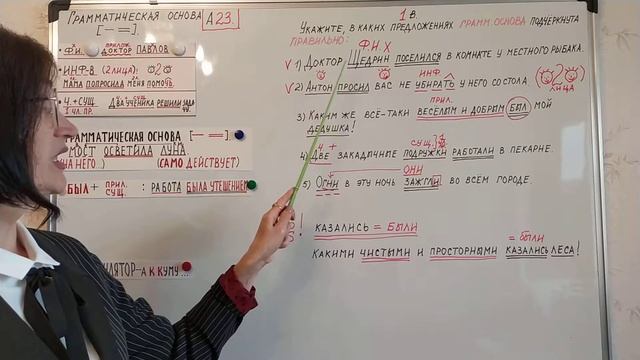 Грамматическая основа А23.
[— =].
Ф.И. приложение
доктор Павлов
ИНФ-В (2 лица)! 2
Мама попросила меня помочь.
Ч. + СУЩ.
1 чл. пр.
Два ученика решили
Грамматическая основа [— =]
Мост осветила луна.
(на него) (само действует)
Был + прил. сущ. : работа была утешением
-А К КУМУ...
1 в.
Укажите, в каких предложениях грамм. основа подчеркнута
правильно:
Ф.И. Х
V 1) Доктор Щедрин поселился в комнате у местного рыбака.
ИНФ.
V 2) Антон просил вас не убирать у него со стола. (2 лица)
прил.
3) Каким же всё-таки весёлым и добрым был мой
дедушка!
ч. + сущ.
4) Две закадычные подружки работали в пекарне.
они
5) Огни в эту ночь зажгли во всём городе.
! Казались = были
= были
Каким чистыми и просторными казались леса!